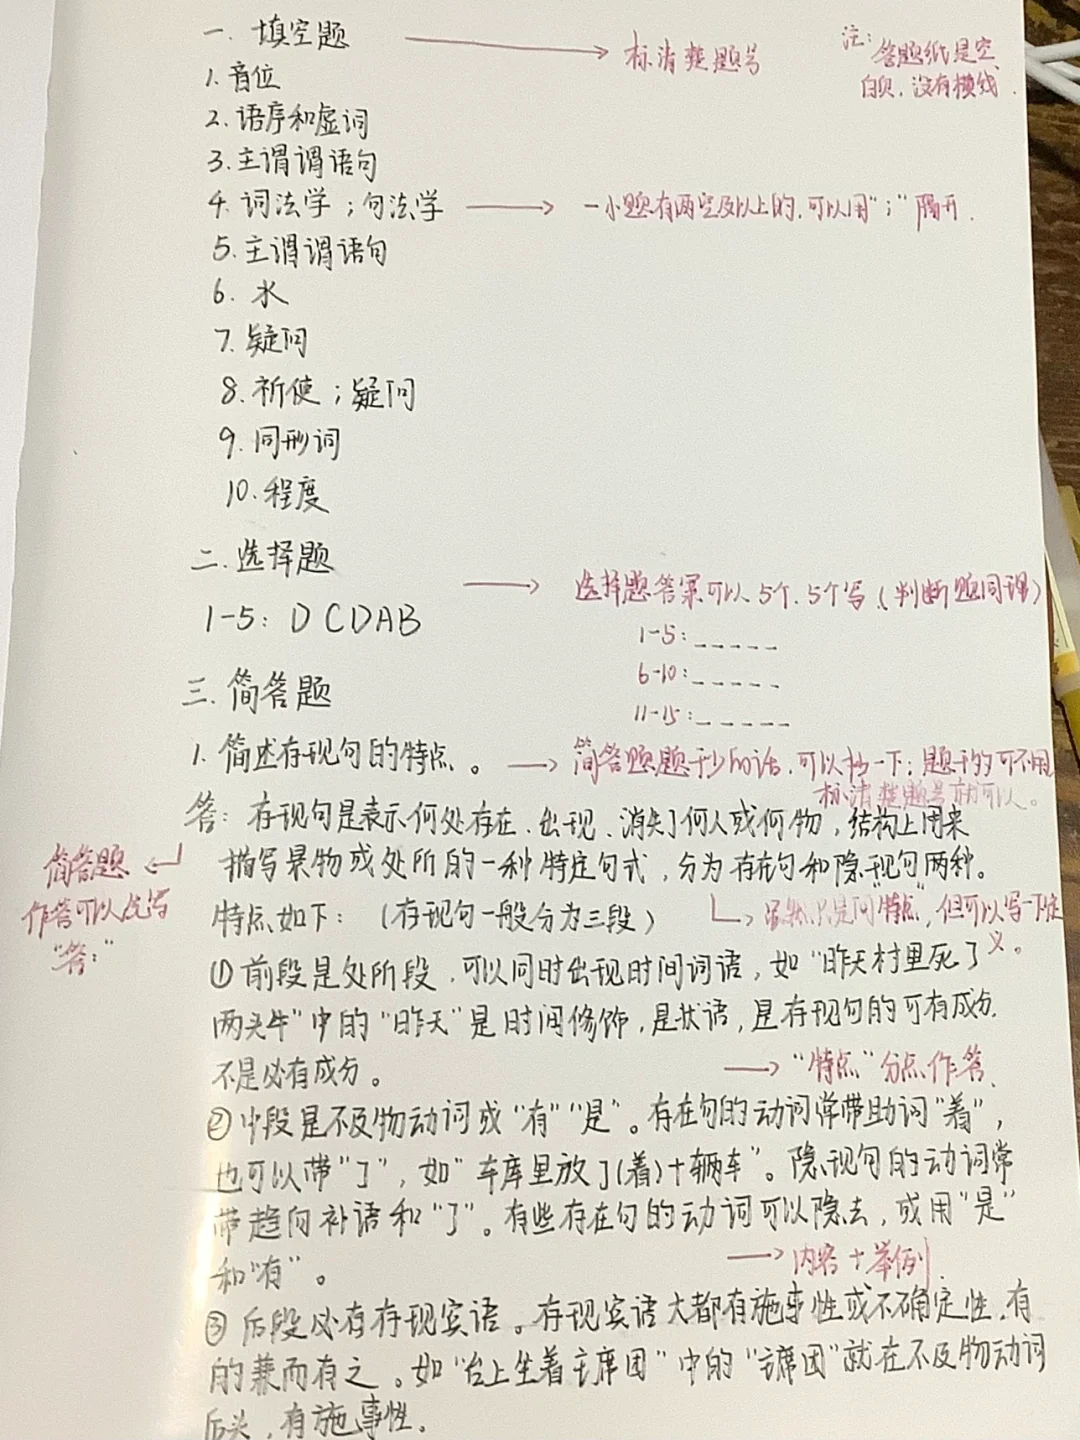 一. 填空题
标清楚题号
注:
答题纸是空
白页,没有横线.
1. 音位
2. 语序和虚词
3. 主谓谓语句
4. 词法学；句法学
一小题有两空及以上的,可以用"；"隔开.
5. 主谓谓语句
6. 水
7. 疑问
8. 祈使；疑问
9. 同形词
10. 程度
二. 选择题
选择题答案可以5个、5个写(判断题同理)
1-5: DCDAB
1-5: _ _ _ _ _
6-10: _ _ _ _ _
11-15: _ _ _ _ _
三. 简答题
1. 简述存现句的特点。
简答题题干少的话,可以抄一下；题干的可不用
标清楚题号就可以。
答: 存现句是表示何处存在、出现、消失了何人或何物，结构上用来
简答题
作答可以先写
"答:"
描写景物或处所的一种特定句式，分为存在句和隐现句两种。
特点如下: (存现句一般分为三段)
虽然只是问"特点",但可以写一下定
义。
①前段是处所段，可以同时出现时间词语，如"昨天村里死了
两头牛"中的"昨天"是时间修饰，是状语，是存现句的可有成分
不是必有成分。
"特点"分点作答、
②中段是不及物动词或"有""是"。存在句的动词常带助词"着"，
也可以带"了"，如"车库里放了(着)十辆车"。隐现句的动词常
带趋向补语和"了"。有些存在句的动词可以隐去，或用"是"
和"有"。
内容+举例.
③后段必有存现宾语。存现宾语大都有施事性或不确定性，有
的兼而有之。如"台上坐着主席团"中的"主席团"就在不及物动词
后头，有施事性.